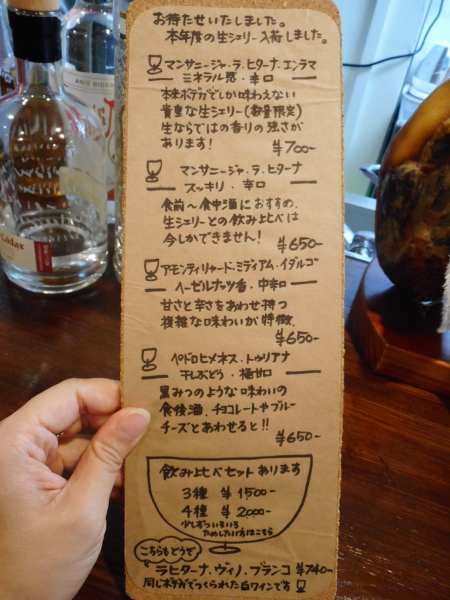 お待たせいたしました。
本年度の生シェリー入荷しました。
マンサニージャ・ラ・ヒターナ・エンラマ
ミネラル感・辛口
本来ボデガでしか味わえない
貴重な生シェリー(数量限定)
生ならではの香りの強さが
あります!
¥700-
マンサニージャ・ラ・ヒターナ
スッキリ・辛口
食前〜食中酒におすすめ.
生シェリーとの飲み比べは
今しかできません!
¥650-
アモンティリャード・ミディアム・イダルゴ
ヘーゼルナッツ香・中辛口
甘さと辛さをあわせ持つ
複雑な味わいが特徴.
¥650-
ペドロヒメネス・トゥリアナ
干しぶどう・極甘口
黒みつのような味わいの
食後酒.チョコレートやブルー
チーズとあわせると!!
¥650-
飲み比べセットあります
3種 ¥1500-
4種 ¥2000-
少しずついろいろ
ためしたい方はこちら
こちらもどうぞ
ラヒターナ・ヴィノ・ブランコ ¥740-
同じボデガでつくられた白ワインです